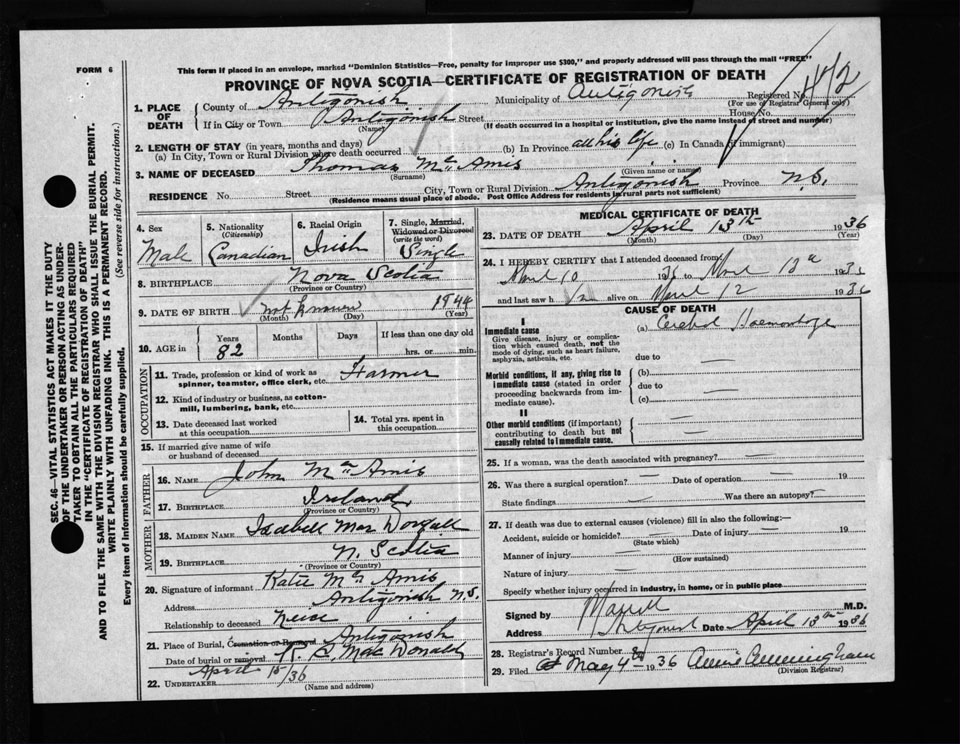 FORM 6
This form if placed in an envelope, marked "Dominion Statistics—Free, penalty for improper use $300," and properly addressed will pass through the mail "FREE"
PROVINCE OF NOVA SCOTIA—CERTIFICATE OF REGISTRATION OF DEATH
1. PLACE OF DEATH
County of Antigonish Municipality of Antigonish Registered No.
(For use of Registrar General only)
If in City or Town Antigonish Street House No.
(Name) (If death occurred in a hospital or institution, give the name instead of street and number)
2. LENGTH OF STAY (in years, months and days)
(a) In City, Town or Rural Division where death occurred (b) In Province all his life (c) In Canada (if immigrant)
3. NAME OF DECEASED Thomas Mc Amis
(Surname) (Given name or names)
RESIDENCE No. Street City, Town or Rural Division Antigonish Province N.S.
(Residence means usual place of abode. Post Office Address for residents in rural parts not sufficient)
4. Sex Male
5. Nationality (Citizenship) Canadian
6. Racial Origin Irish
7. Single, Married, Widowed or Divorced (write the word) Single
8. BIRTHPLACE Nova Scotia
(Province or Country)
9. DATE OF BIRTH not known
(Month) (Day) (Year)
10. AGE in Years 82 Months Days If less than one day old hrs. or min.
OCCUPATION
11. Trade, profession or kind of work as spinner, teamster, office clerk, etc. Farmer
12. Kind of industry or business, as cotton-mill, lumbering, bank, etc.
13. Date deceased last worked at this occupation.
14. Total yrs. spent in this occupation.
15. If married give name of wife or husband of deceased
FATHER
16. NAME John Mc Amis
17. BIRTHPLACE Ireland
(Province or Country)
MOTHER
18. MAIDEN NAME Isabell Mac Dougall
19. BIRTHPLACE N. Scotia
(Province or Country)
20. Signature of informant Katie Mc Amis
Address Antigonish N.S.
Relationship to deceased Neice
21. Place of Burial, Cremation or Removal Antigonish
Date of burial or removal April 15/36
22. UNDERTAKER R. S. MacDonald
(Name and address)
MEDICAL CERTIFICATE OF DEATH
23. DATE OF DEATH April 13th 1936
(Month) (Day) (Year)
24. I HEREBY CERTIFY that I attended deceased from
April 10 1936 to April 12th 1936
and last saw him alive on April 12 1936
CAUSE OF DEATH
I
Immediate cause
Give disease, injury or complication which caused death, not the mode of dying, such as heart failure, asphyxia, asthenia, etc.
(a) Cerebral Haemorrhage
due to —
Morbid conditions, if any, giving rise to immediate cause (stated in order proceeding backwards from immediate cause).
(b) —
due to —
(c) —
II
Other morbid conditions (if important) contributing to death but not causally related to immediate cause.
25. If a woman, was the death associated with pregnancy? —
26. Was there a surgical operation? — Date of operation — 19
State findings — Was there an autopsy? —
27. If death was due to external causes (violence) fill in also the following:—
Accident, suicide or homicide? — Date of injury — 19
(State which)
Manner of injury —
(How sustained)
Nature of injury —
Specify whether injury occurred in industry, in home, or in public place
Signed by M.D.
Address Antigonish Date April 13th 1936
28. Registrar's Record Number
29. Filed May 4th 1936 Annie Cunningham
(Division Registrar)
SEC. 46—VITAL STATISTICS ACT MAKES IT THE DUTY
OF THE UNDERTAKER OR PERSON ACTING AS UNDER-
TAKER TO OBTAIN ALL THE PARTICULARS REQUIRED
IN THE "CERTIFICATE OF REGISTRATION OF DEATH"
AND TO FILE THE SAME WITH THE DIVISION REGISTRAR WHO SHALL ISSUE THE BURIAL PERMIT.
WRITE PLAINLY WITH UNFADING INK. THIS IS A PERMANENT RECORD.
Every item of information should be carefully supplied. (See reverse side for instructions.)